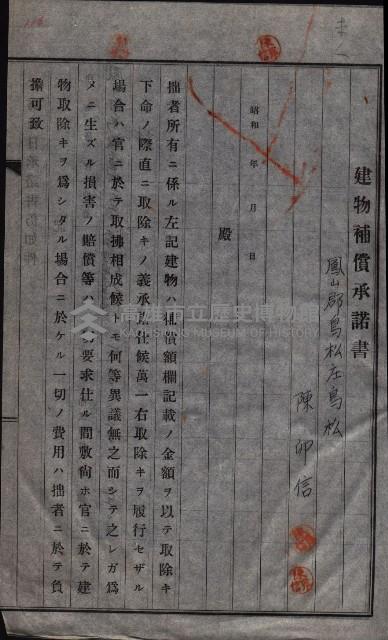 建物補償承諾書
鳳山郡鳥松庄鳥松
陳卯信
昭和 年 月 日
殿
拙者所有ニ係ル左記建物ハ補償額欄記載ノ金額ヲ以テ取除キ
下命ノ際直ニ取除キノ義承諾仕候萬一右取除キヲ履行セザル
場合ハ官ニ於テ取拂相成候トモ何等異議無之而シテ之レガ爲
メニ生ズル損害ノ賠償等ハ 切要求仕ル間敷尙ホ官ニ於テ建
物取除キヲ爲シタル場合ニ於ケル一切ノ費用ハ拙者ニ於テ負
擔可致
高雄市立歷史博物館